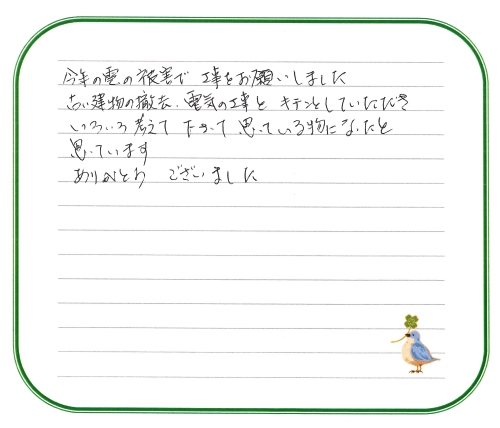 今年の雪の被害で 工事をお願いしました
古い建物の撤去、電気の工事と キチンとしていただき
いろいろ考えて下さって 思っている物になったと
思っています
ありがとう ございました